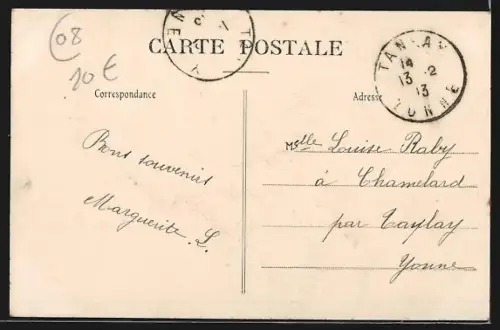 08
10 €
CARTE POSTALE
TANLAY
14
13 -2
13
YONNE
Correspondance
Adresse
Bons souvenirs
Marguerite. L.
Mlle Louise Raby
à Chamelard
par Taylay
Yonne